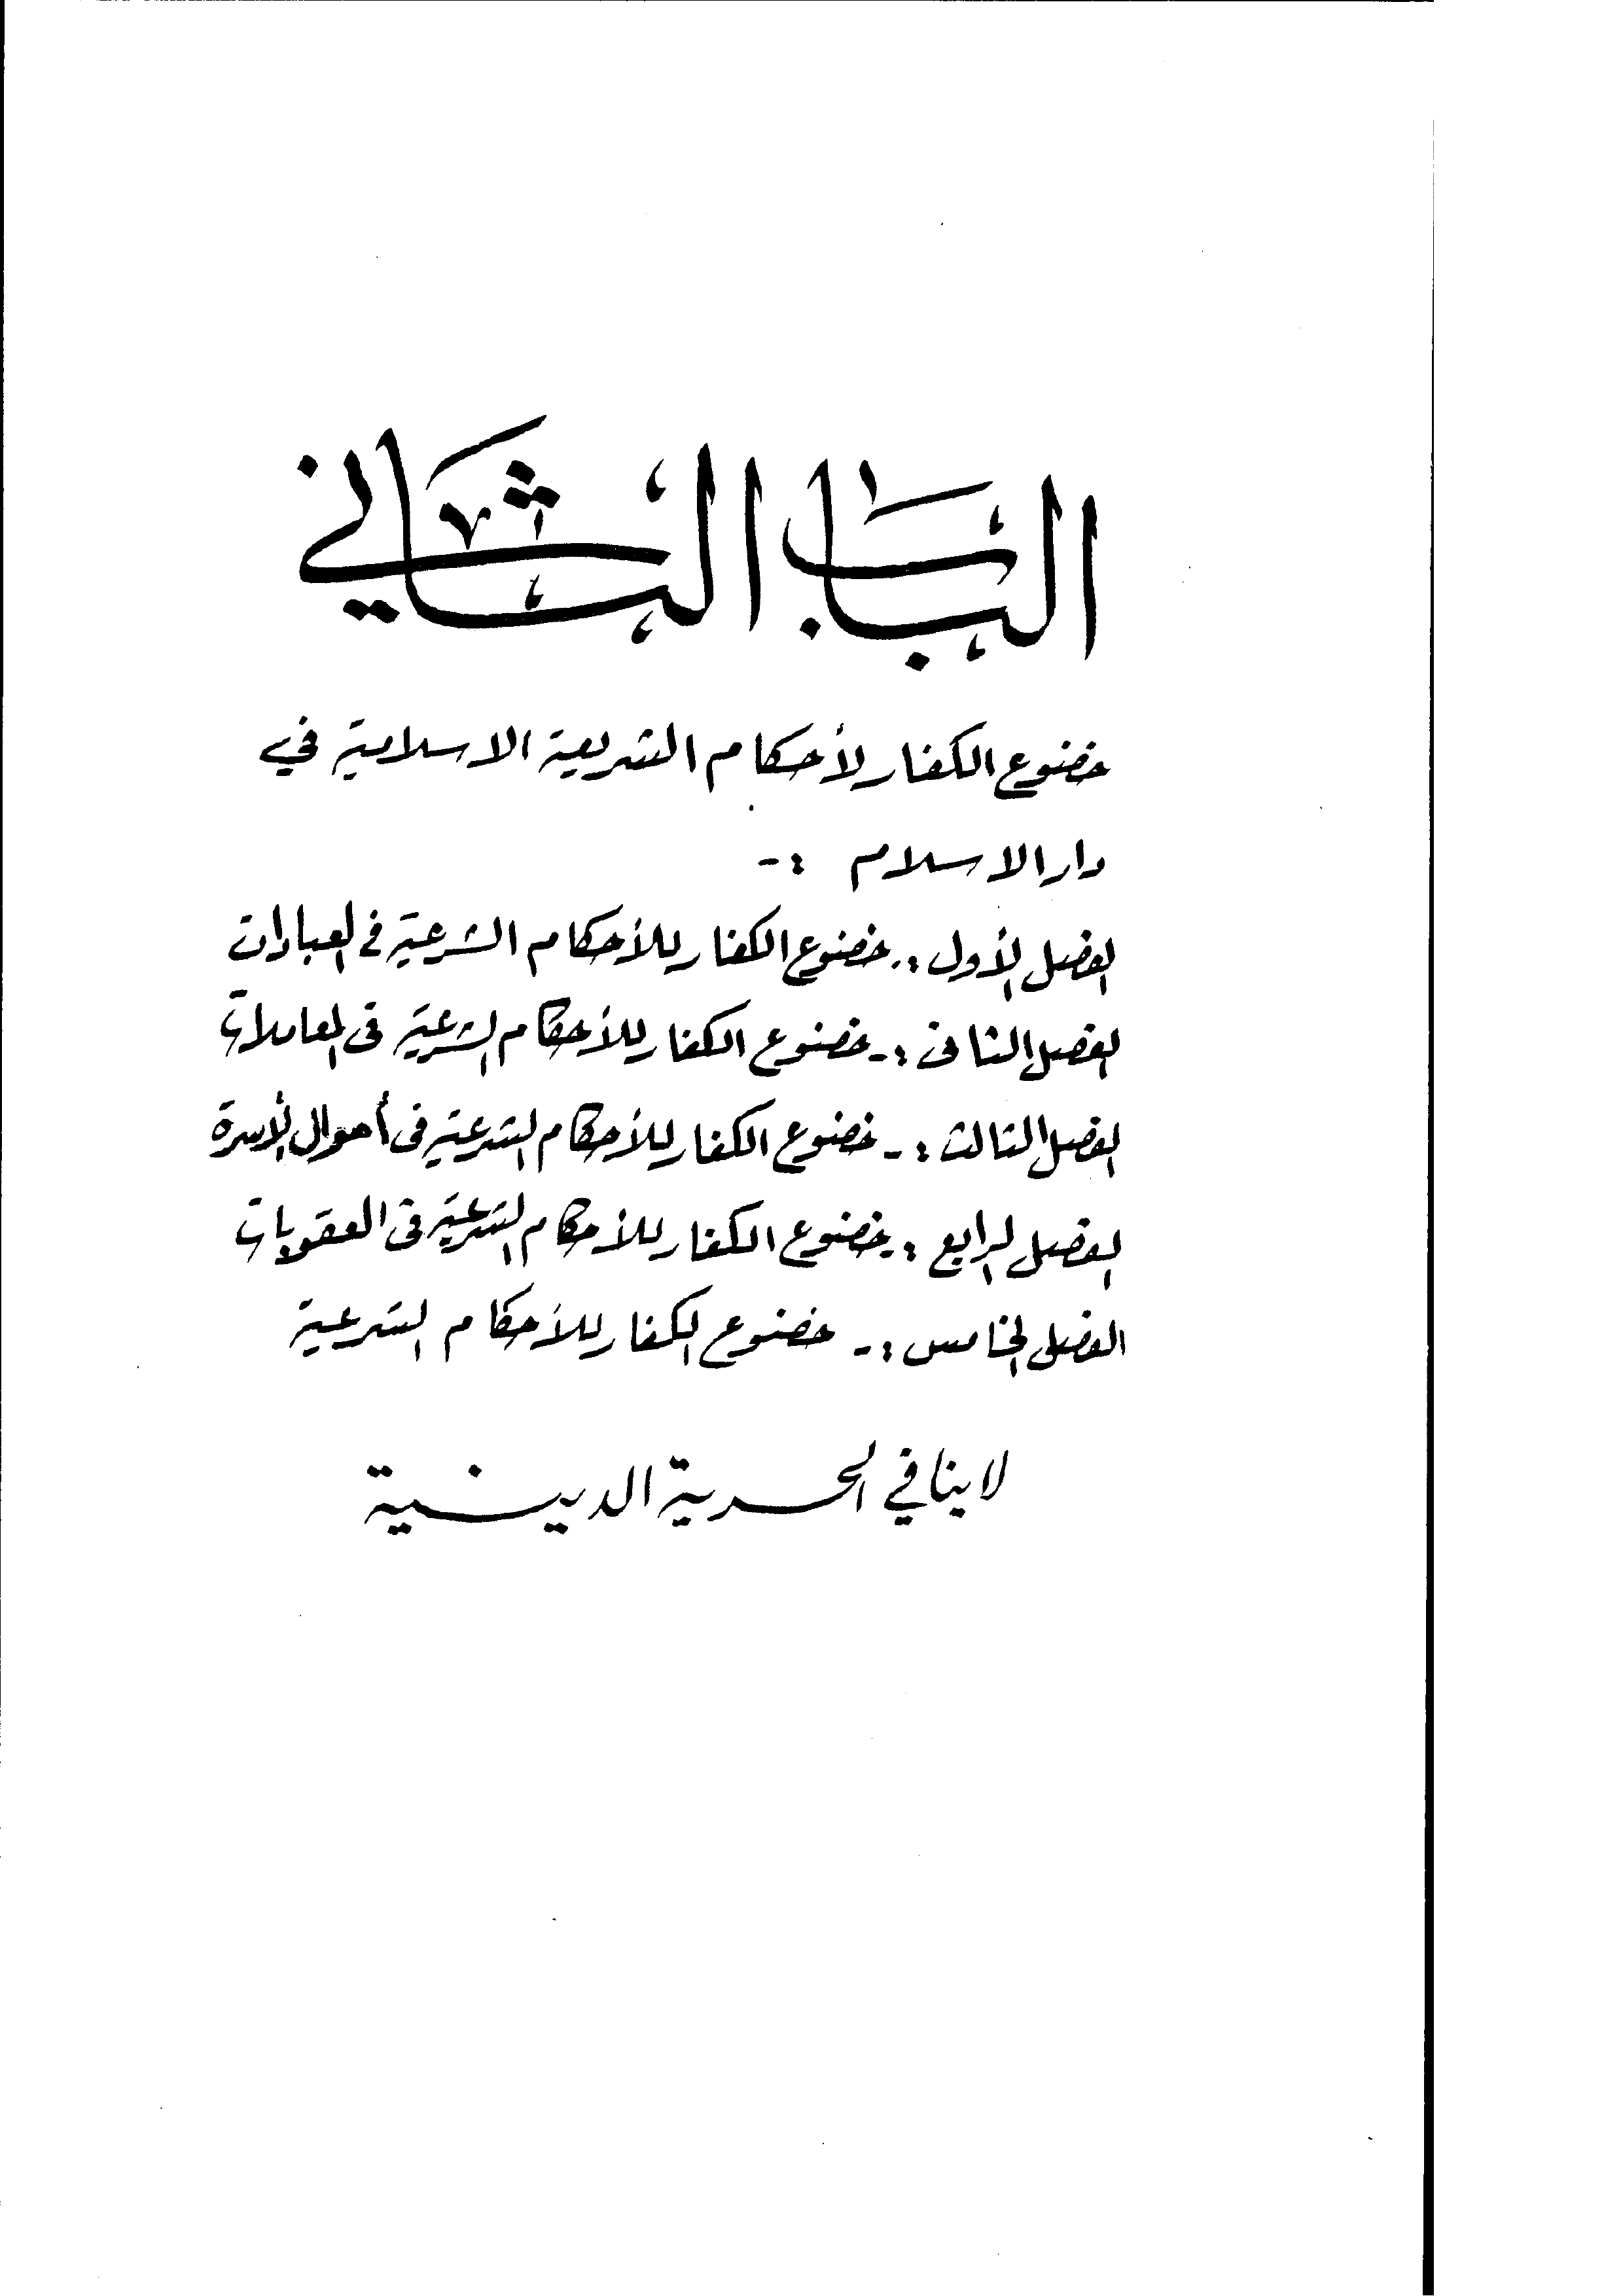 الباب الثاني
خضوع الكفار لأحكام الشريعة الاسلامية في
دار الاسلام :-
الفصل الأول :- خضوع الكفار للأحكام الشرعية في العبادات
الفصل الثاني :- خضوع الكفار للأحكام الشرعية في المعاملات
الفصل الثالث :- خضوع الكفار للأحكام الشرعية في أحوال الأسرة
الفصل الرابع :- خضوع الكفار للأحكام الشرعية في العقوبات
الفصل الخامس :- خضوع الكفار للأحكام الشرعية
لا ينافي الحرية الدينية